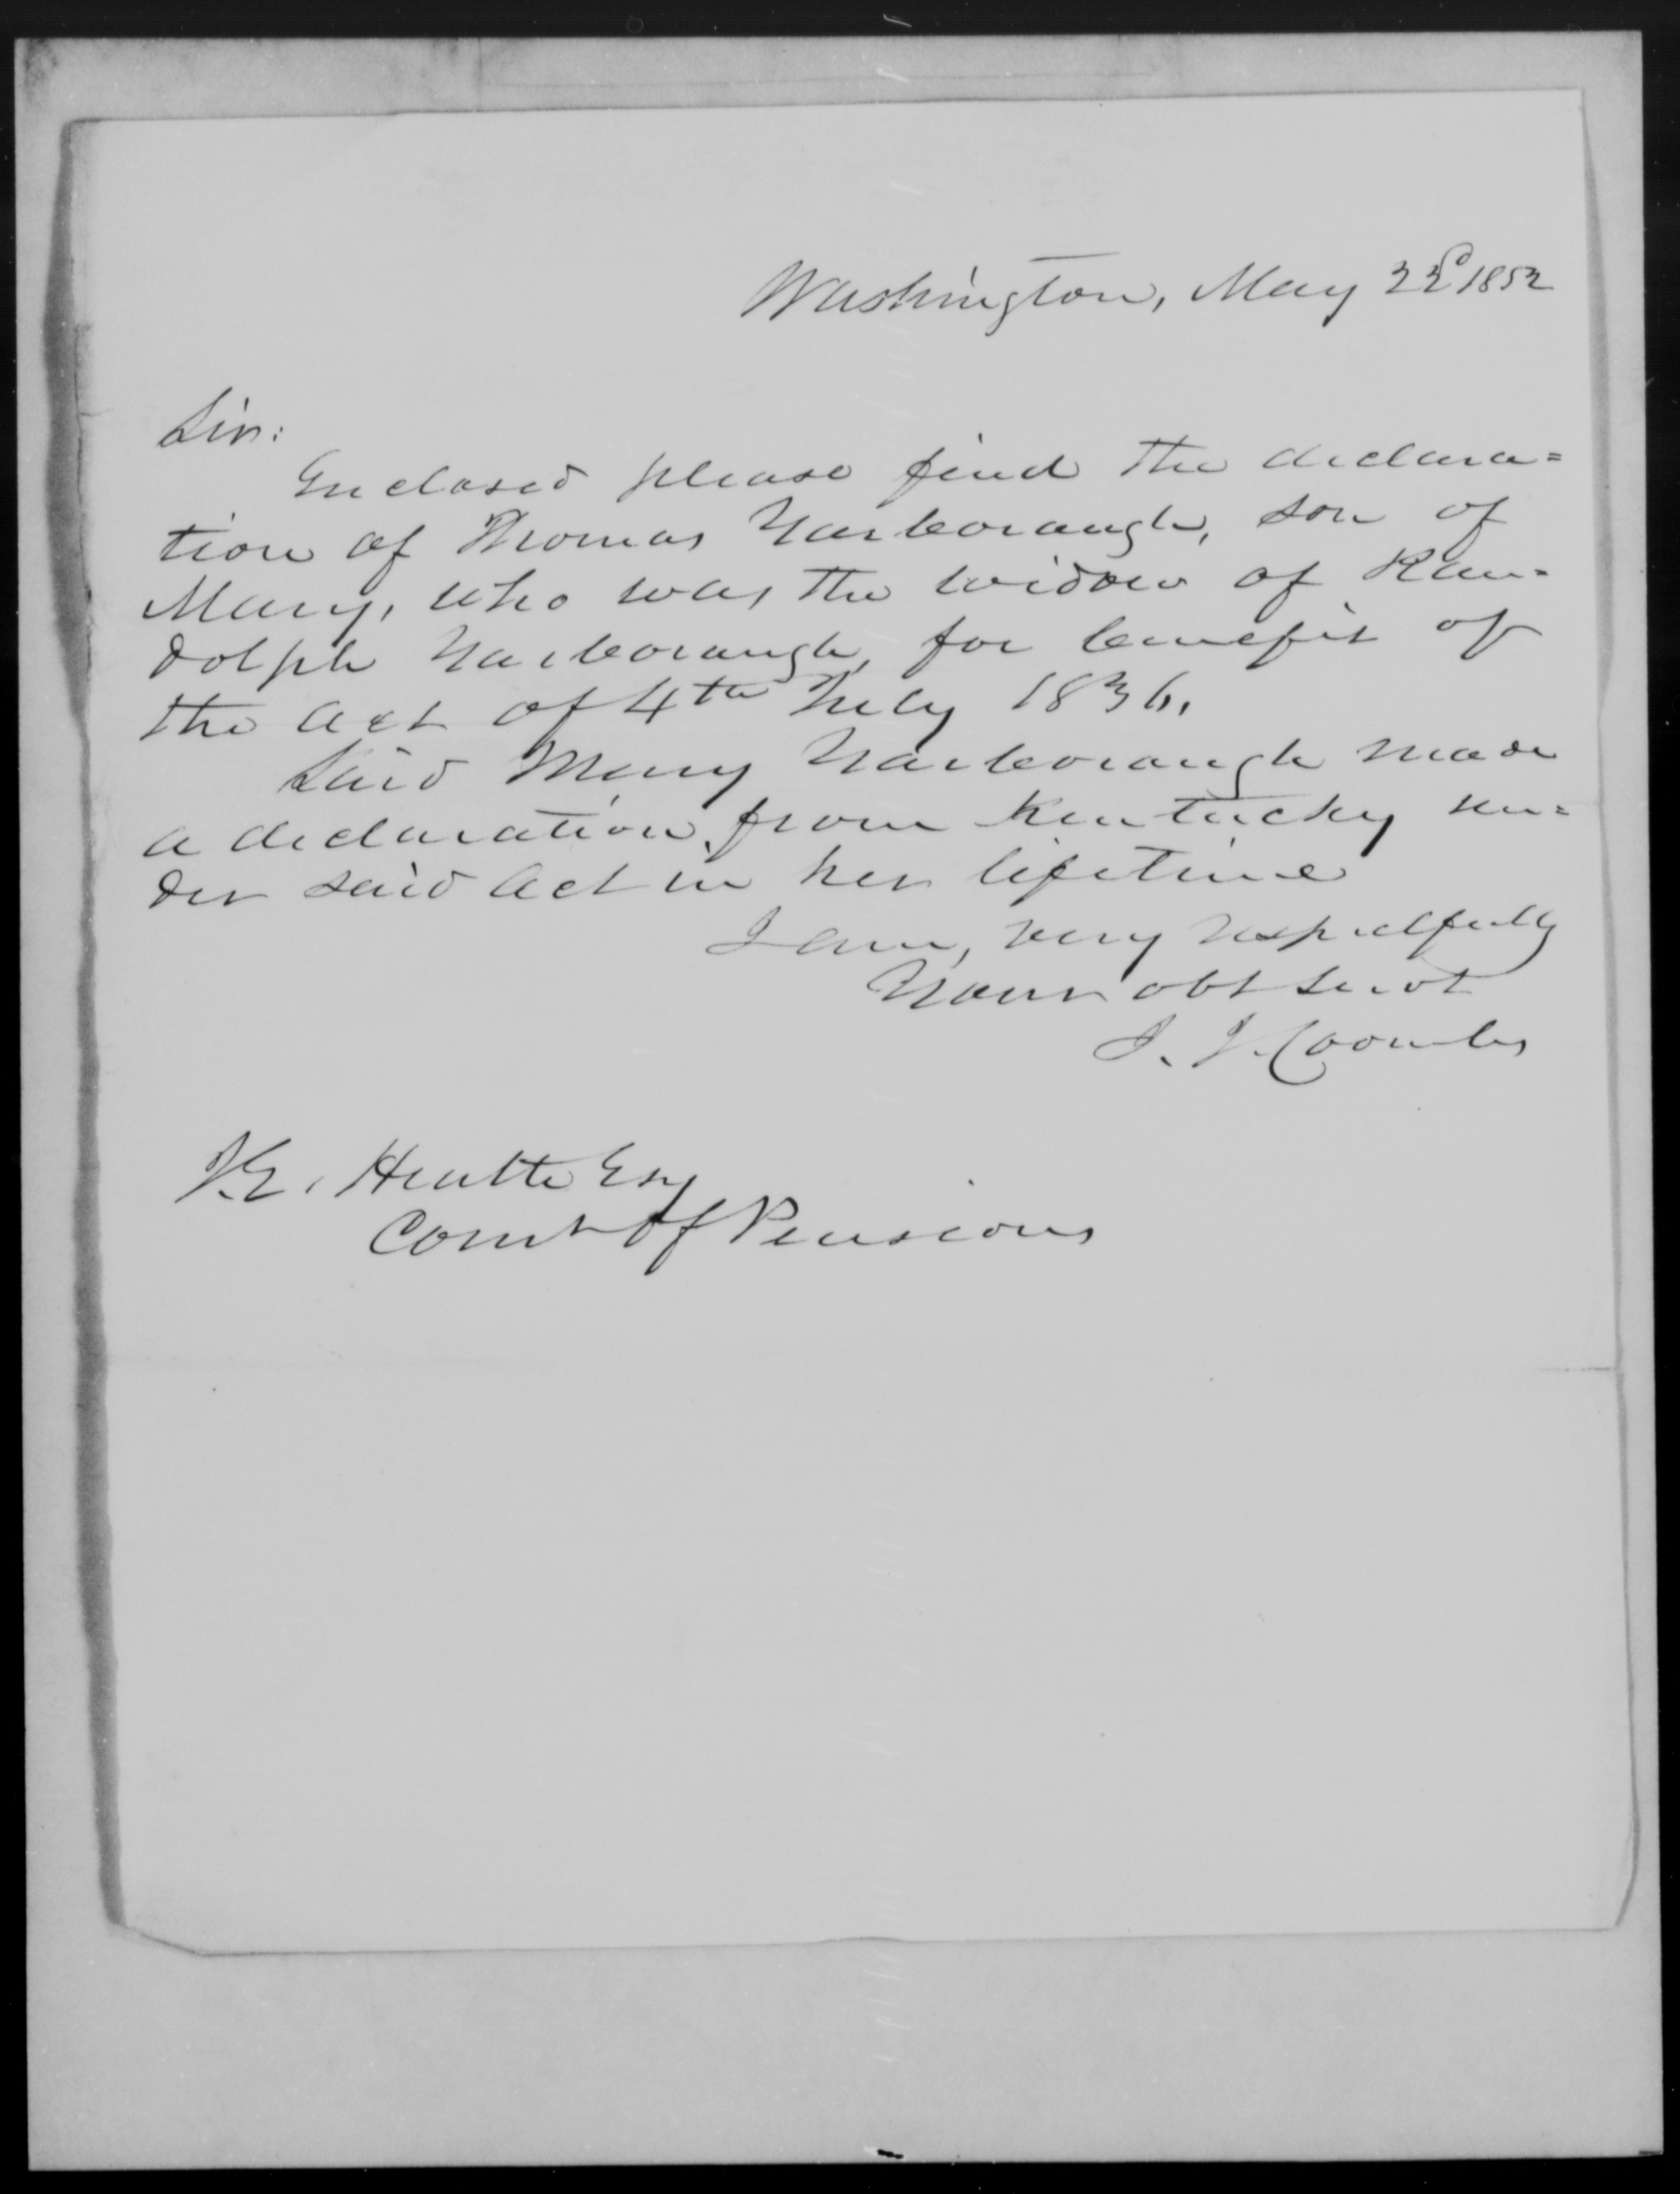 Washington, May 22d 1852
Sir:
Enclosed please find the declara=
tion of Thomas Yarborough, son of
Mary, who was the widow of Ran=
dolph Yarborough, for benefit of
the act of 4th July 1836.
Said Mary Yarborough made
a declaration from Kentucky un=
der said act in her lifetime
I am, very respectfully
Your obt servt
J. J. Coombs
J. E. Heath Esq
Comr of Pensions